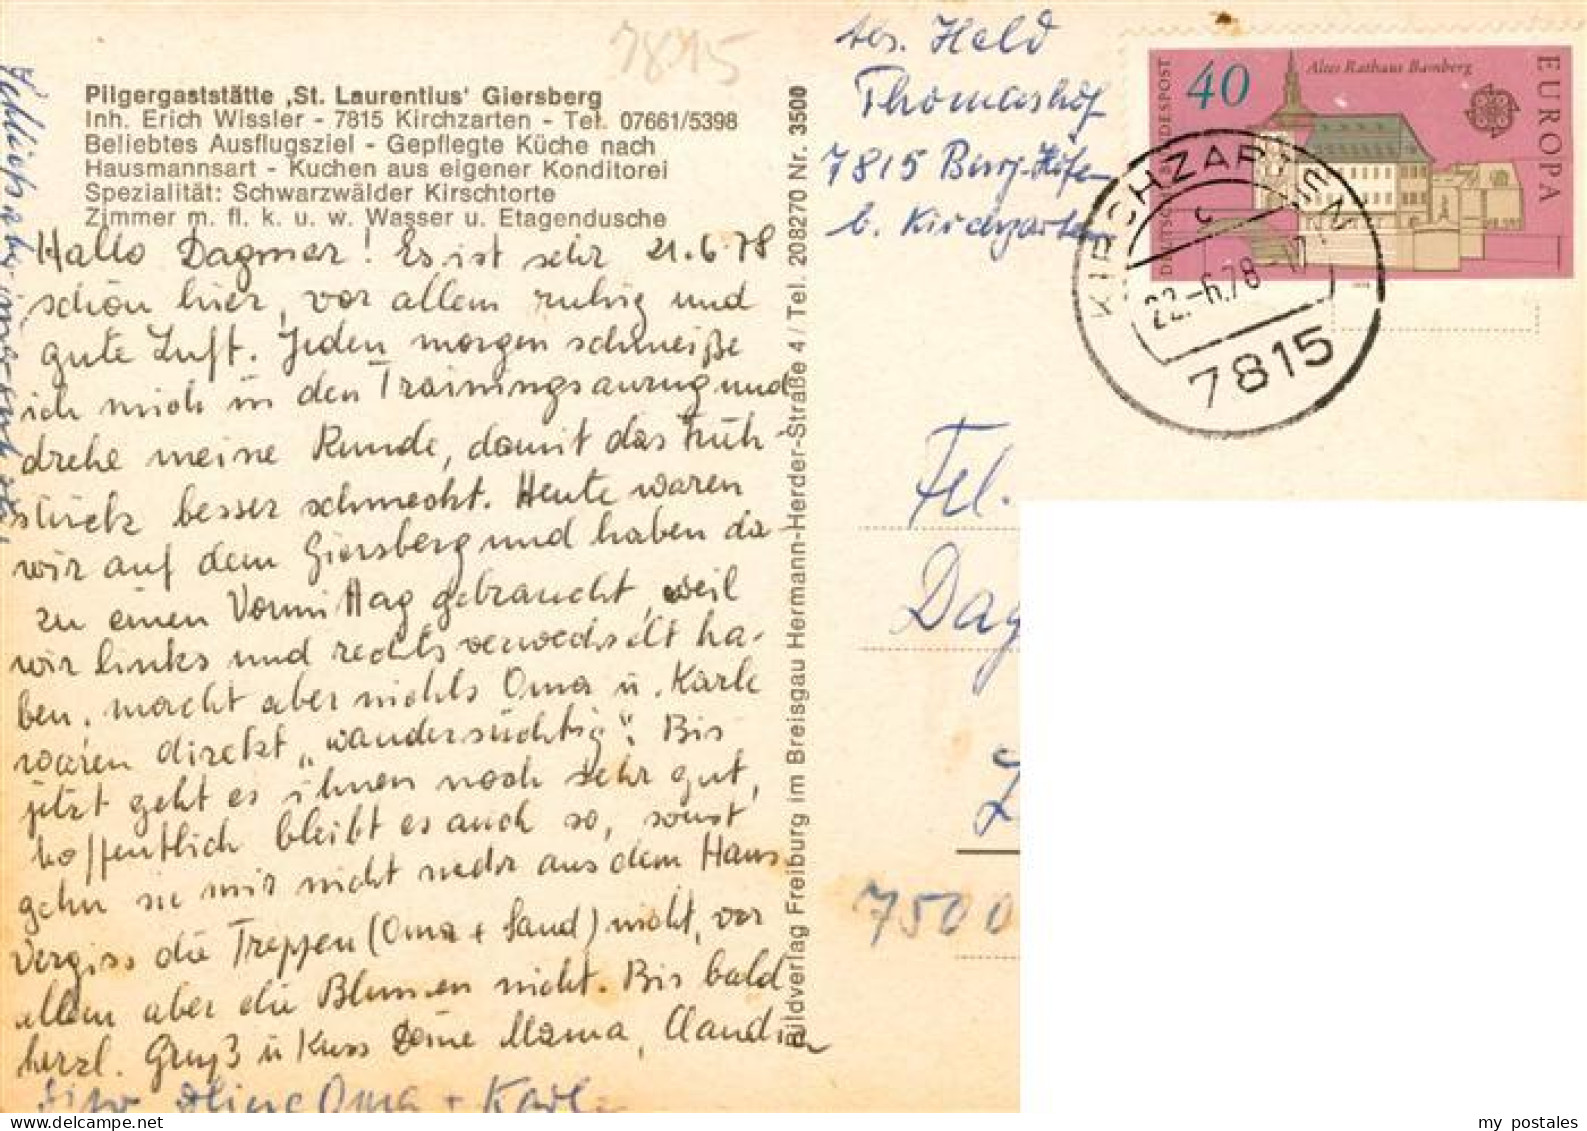 7815
Pilgergaststätte ‚St. Laurentius' Giersberg
Inh. Erich Wissler - 7815 Kirchzarten - Tel. 07661/5398
Beliebtes Ausflugsziel - Gepflegte Küche nach
Hausmannsart - Kuchen aus eigener Konditorei
Spezialität: Schwarzwälder Kirschtorte
Zimmer m. fl. k. u. w. Wasser u. Etagendusche
21.6.78
Hallo Dagmar! Es ist sehr
schön hier, vor allem ruhig und
gute Luft. Jeden morgen schmeiße
ich mich in den Trainingsanzug und
drehe meine Runde, damit das Früh-
stück besser schmeckt. Heute waren
wir auf dem Giersberg und haben da-
zu einen Vormittag gebraucht, weil
wir links und rechts verwechselt ha-
ben, macht aber nichts Oma u. Karle
waren direkt „wandersüchtig". Bis
jetzt geht es ihnen noch sehr gut,
hoffentlich bleibt es auch so, sonst
gehn sie mir nicht mehr aus dem Haus.
Vergiss die Treppen (Oma + Sand) nicht, vor
allem aber die Blumen nicht. Bis bald
herzl. Gruß u Kuss Deine Mama, Claudia
Oma + Karle
Bildverlag Freiburg im Breisgau Hermann-Herder-Straße 4 / Tel. 208270 Nr. 3500
Abs. Held
Thomashof
7815 Burg-Höfen
b. Kirchzarten
DEUTSCHE BUNDESPOST
40
Altes Rathaus Bamberg
EUROPA
KIRCHZARTEN
c
22.-6.78-17
7815
Frl.
Dag
7500
my postales